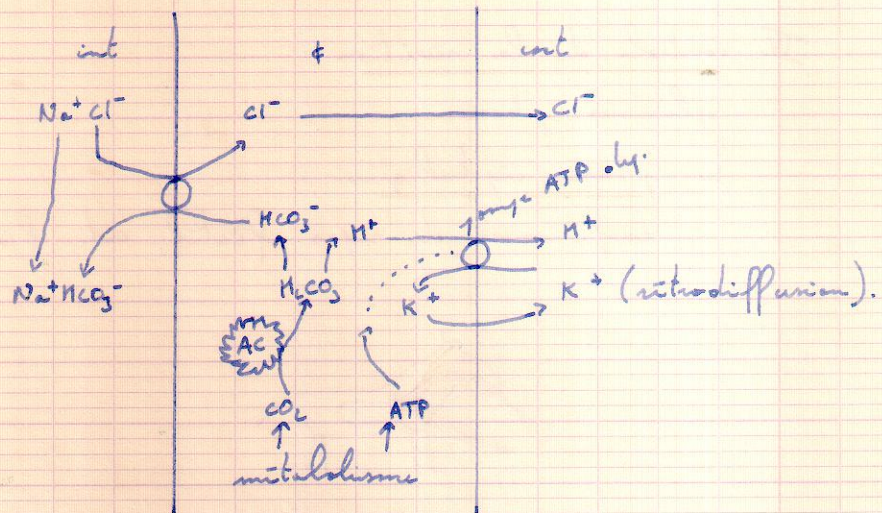 int ¢ ext
Na⁺ Cl⁻ Cl⁻ Cl⁻
pompe ATP dép.
HCO₃⁻ H⁺ H⁺
Na⁺HCO₃⁻ H₂CO₃ K⁺ K⁺ (rétrodiffusion).
AC
CO₂ ATP
métabolisme